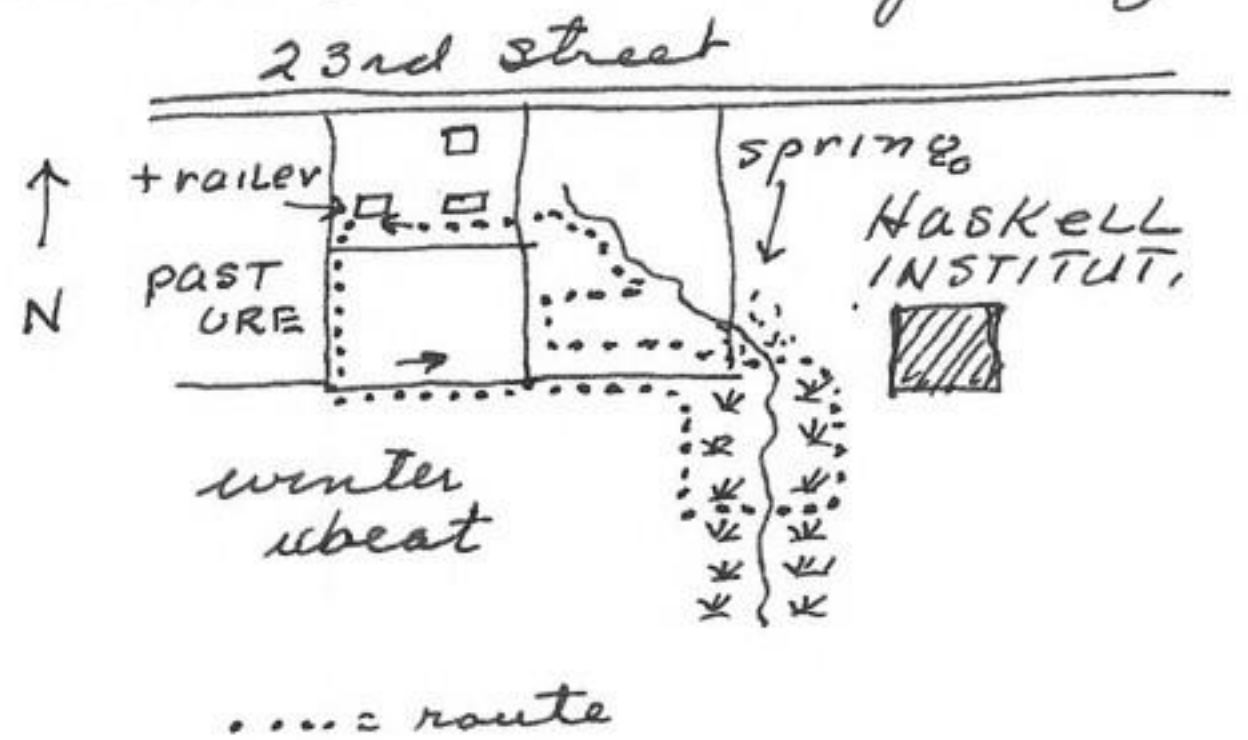 23rd street
spring
trailer
Haskell
INSTITUT.
PAST
URE
N
winter
wheat
.... = route